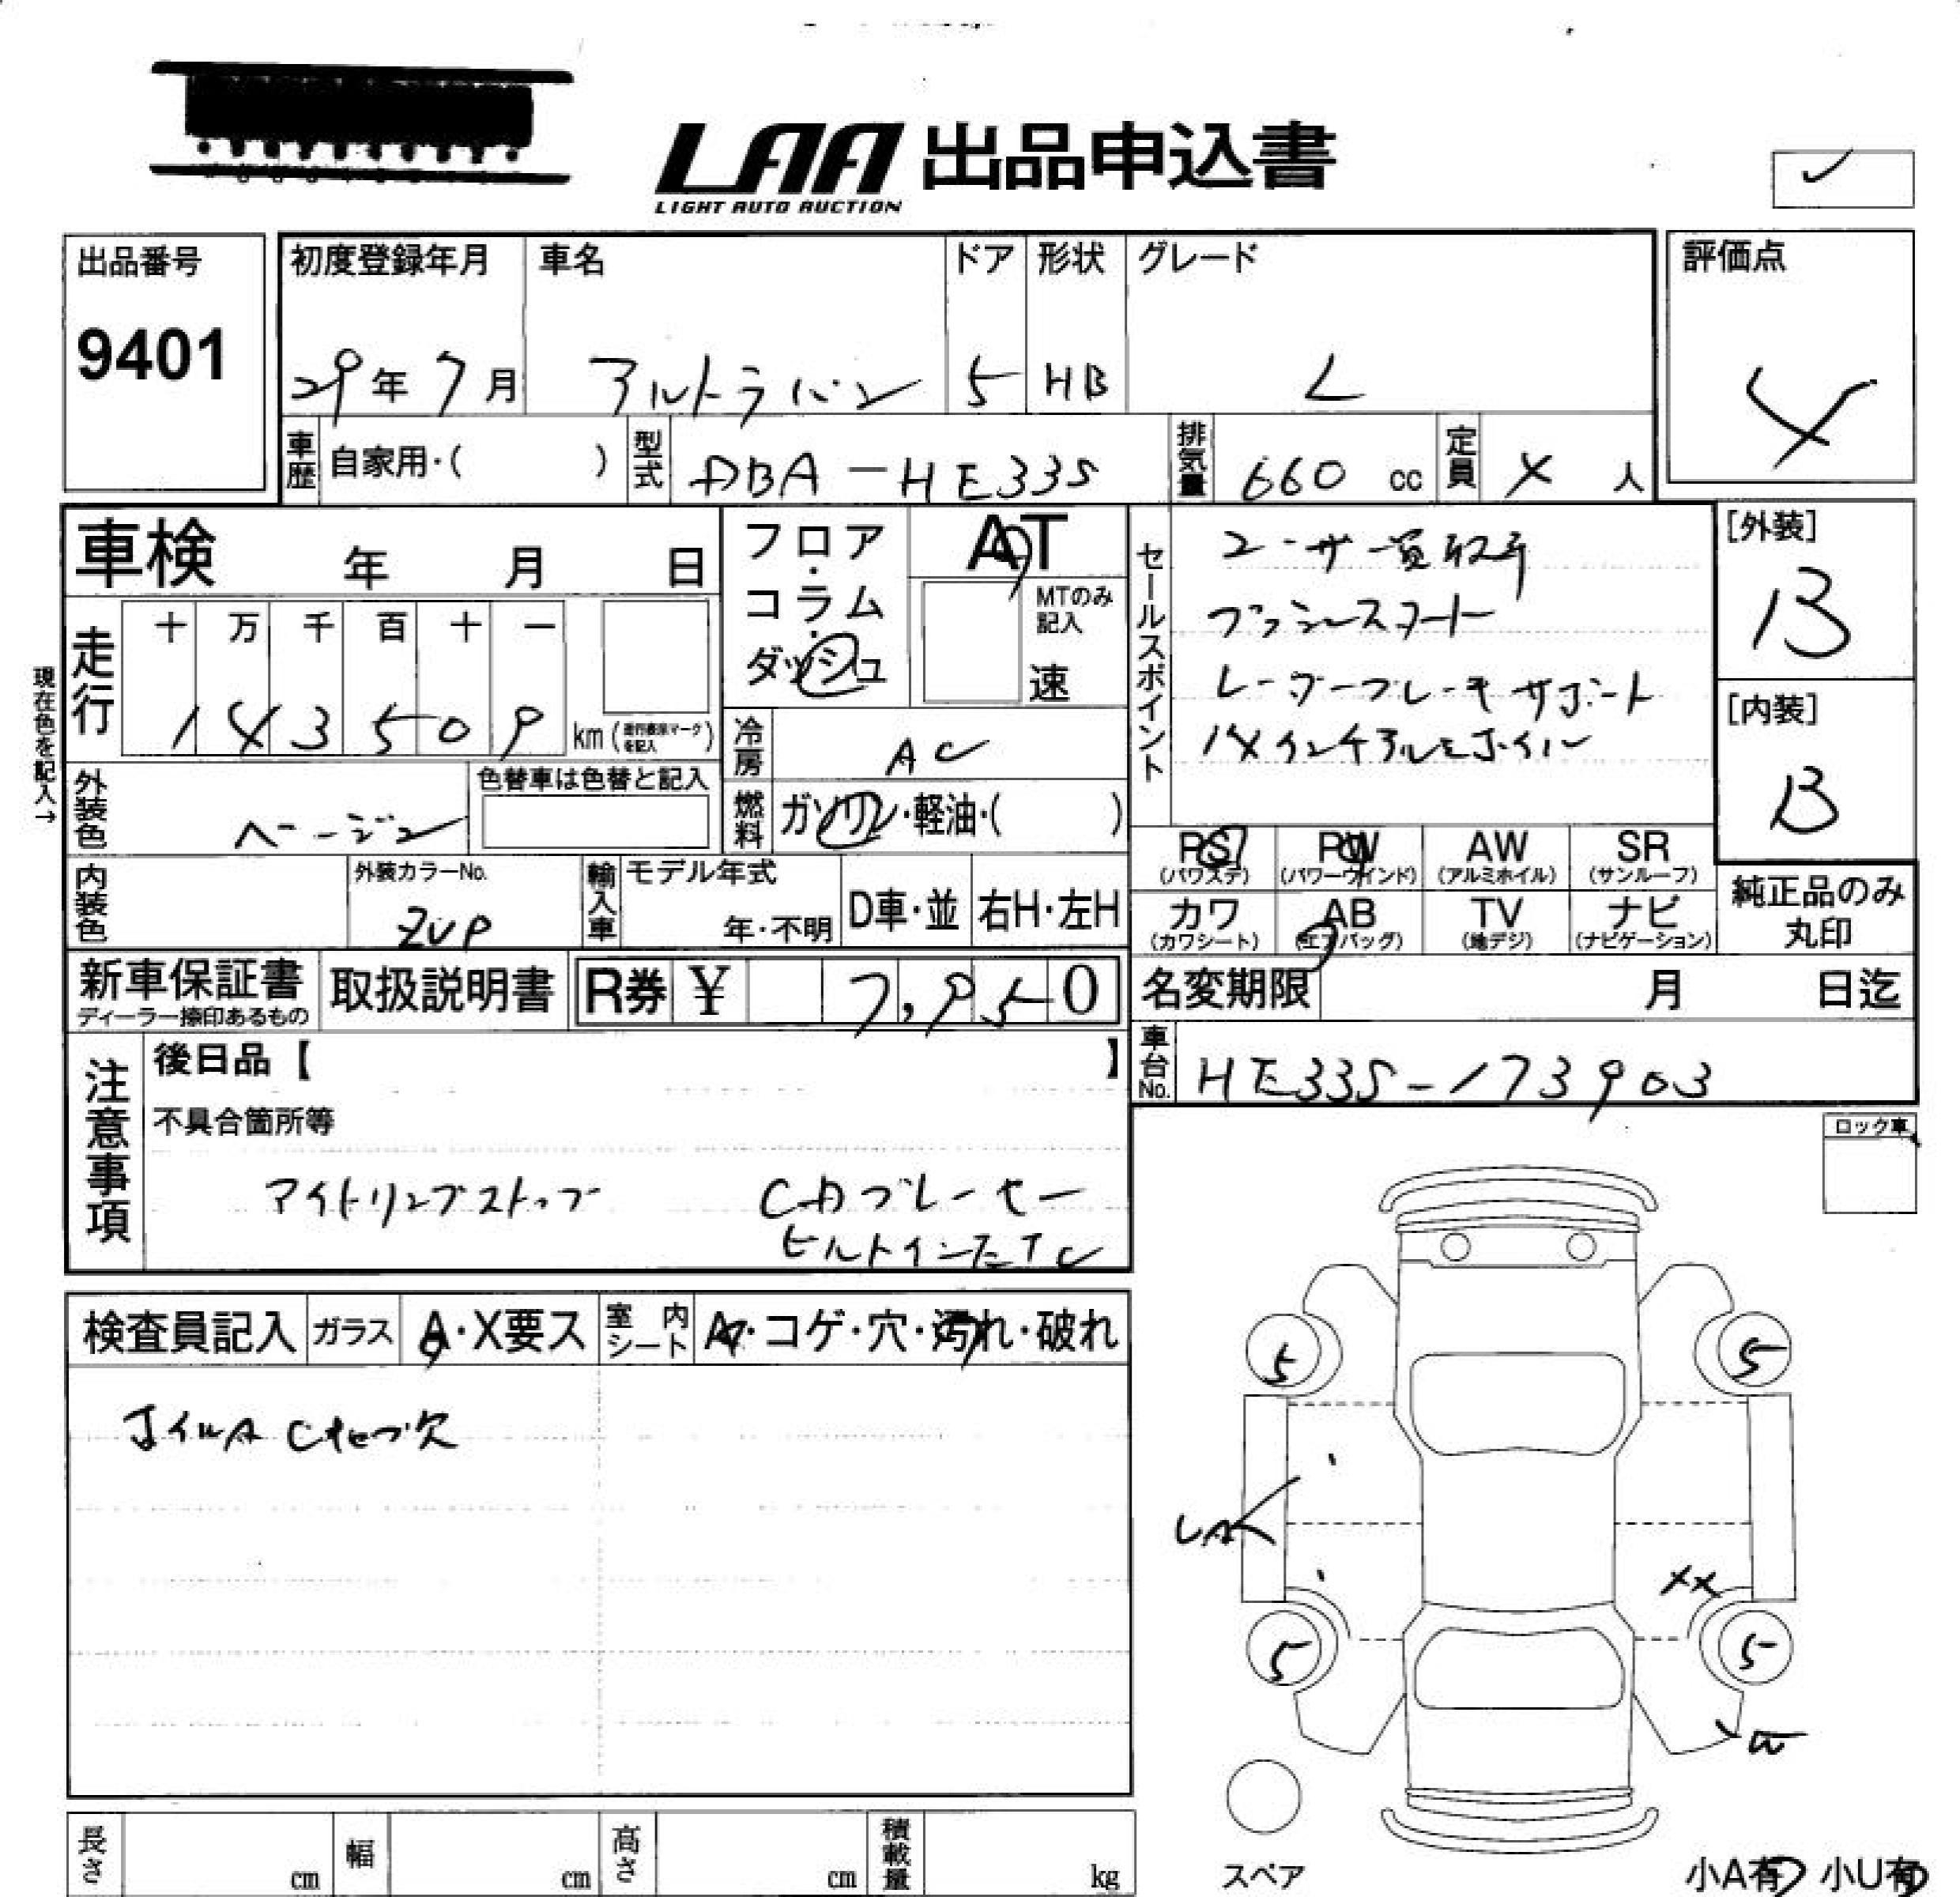 LAA 出品申込書
LIGHT AUTO AUCTION
出品番号
9401
初度登録年月
29年7月
車名
アルトラパン
ドア
5
形状
HB
グレード
L
評価点
4
車歴 自家用・( )
型式 DBA-HE33S
排気量 660 cc
定員 4 人
車検 年 月 日
フロア・コラム・ダッシュ
AT
MTのみ記入
速
セールスポイント
ユーザー買取車
プッシュスタート
レーダーブレーキサポート
14インチアルミホイル
[外装]
B
[内装]
B
現在色を記入→
走行
十 万 千 百 十 一
1 4 3 5 0 9 km (走行表示マークを記入)
冷房 AC
外装色 ベージュ
色替車は色替と記入
燃料 ガソリン・軽油・( )
PS (パワステ)
PW (パワーウインド)
AW (アルミホイル)
SR (サンルーフ)
カワ (カワシート)
AB (エアバッグ)
TV (地デジ)
ナビ (ナビゲーション)
純正品のみ丸印
内装色
外装カラーNo.
ZVP
輸入車
モデル年式
年・不明
D車・並
右H・左H
新車保証書
ディーラー捺印あるもの
取扱説明書
R券 ¥ 7,950
名変期限 月 日迄
車台No. HE33S-173903
注意事項
後日品【 】
不具合箇所等
アイドリングストップ CDプレーヤー
ビルトインETC
ロック車
検査員記入
ガラス A・X要ス
室内シート A・コゲ・穴・汚れ・破れ
ホイルA Cキャップ欠
5
5
5
5
XX
W
スペア
小A有 小U有
長さ cm
幅 cm
高さ cm
積載量 kg